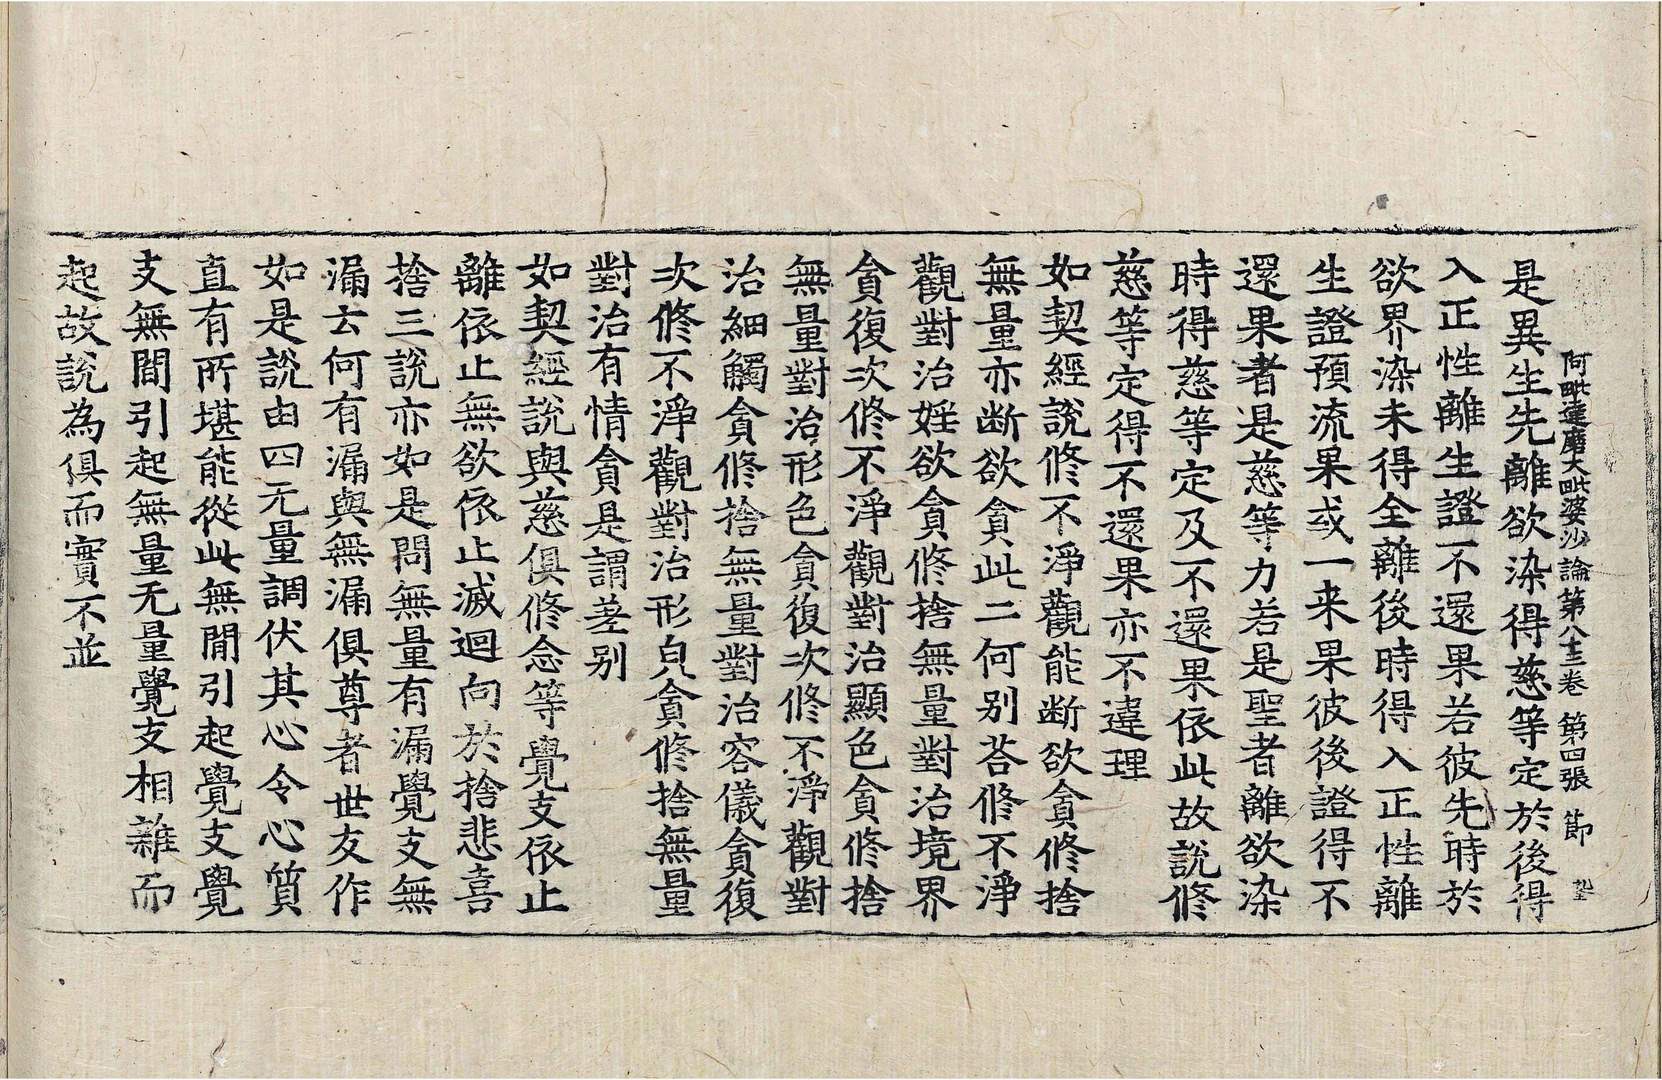 阿毗達磨大毗婆沙論第八十三卷 第四張 節
是異生先離欲染得慈等定於後得
入正性離生證不還果若彼先時於
欲界染未得全離後時得入正性離
生證預流果或一来果彼後證得不
還果者是慈等力若是聖者離欲染
時得慈等定及不還果依此故說修
慈等定得不還果亦不違理
如契經說修不淨觀能断欲貪修捨
無量亦断欲貪此二何別荅修不淨
觀對治婬欲貪修捨無量對治境界
貪復次修不淨觀對治顯色貪修捨
無量對治形色貪復次修不淨觀對
治細觸貪修捨無量對治容儀貪復
次修不淨觀對治形皃貪修捨無量
對治有情貪是謂差別
如契經說與慈俱修念等覺支依止
離依止無欲依止滅迴向於捨悲喜
捨三說亦如是問無量有漏覺支無
漏云何有漏與無漏俱尊者世友作
如是說由四无量調伏其心令心質
直有所堪能從此無間引起覺支覺
支無間引起無量无量覺支相雜而
起故說為俱而實不並